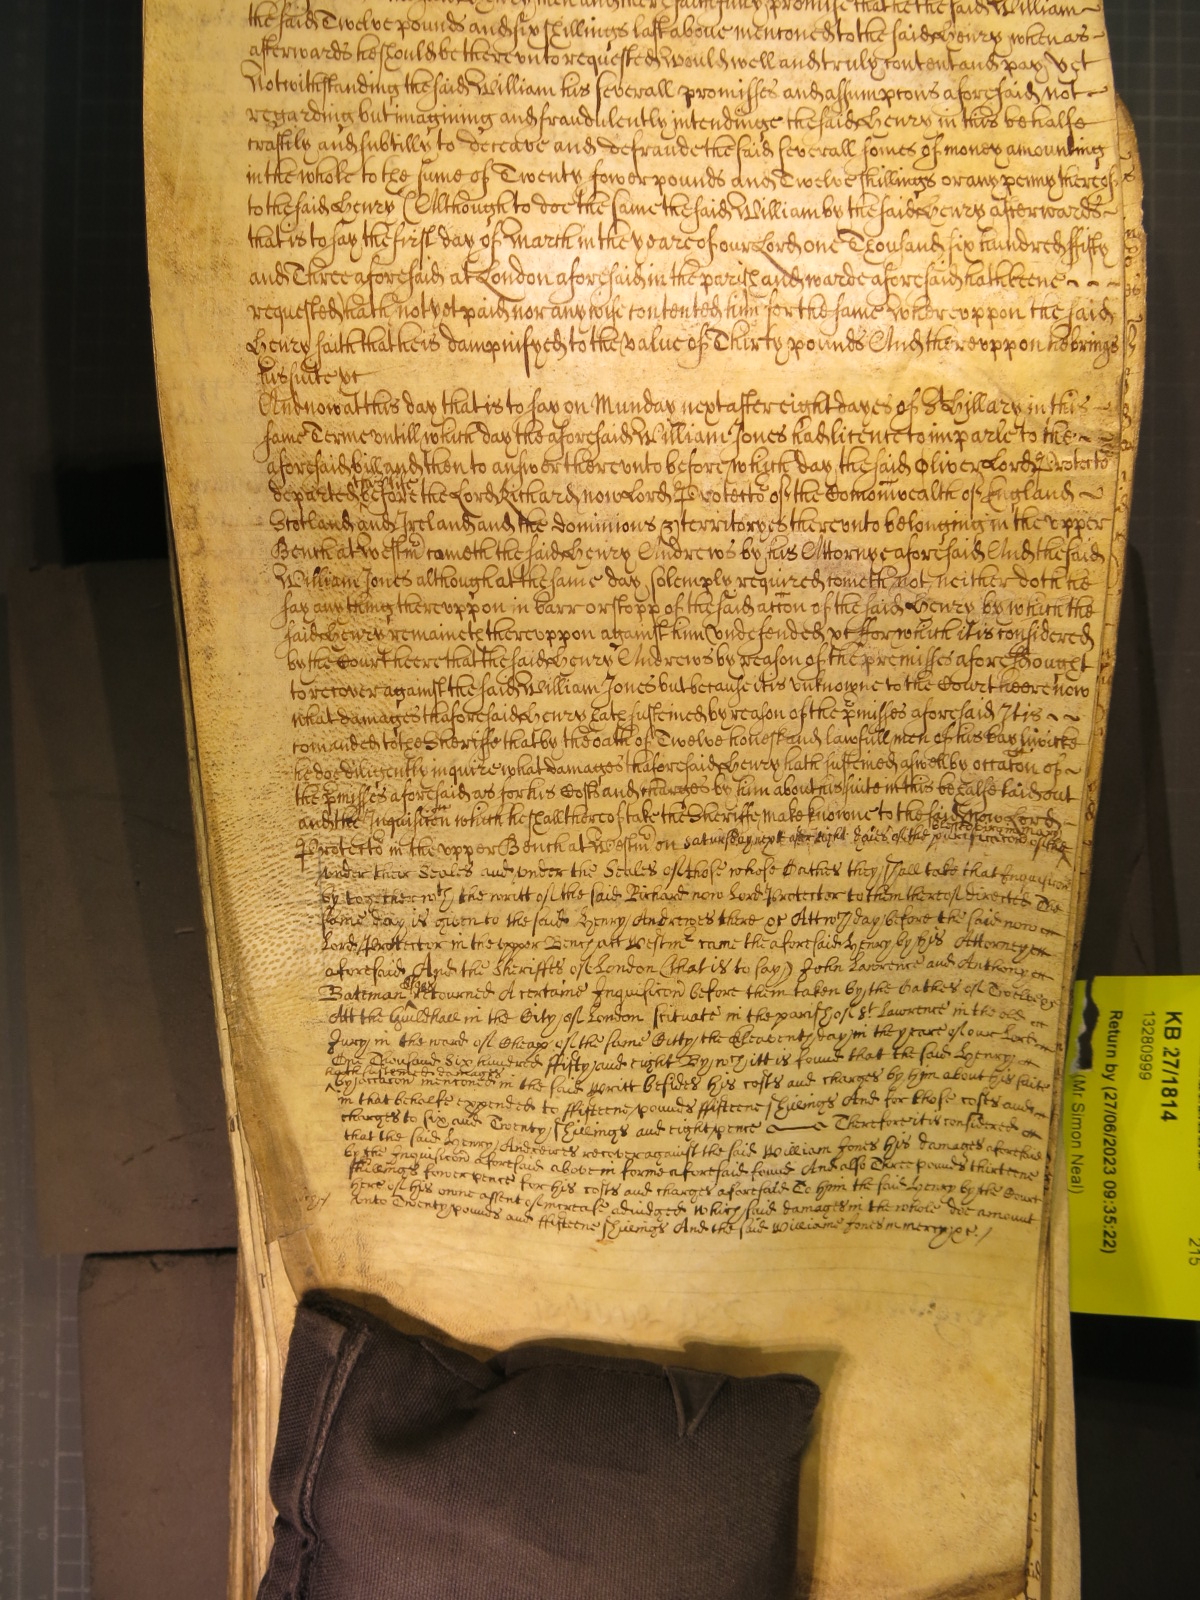 the said Twelve pounds and six shillings last above menconed to the said Henry when as
afterwards he should be thereunto requested would well and truly content and pay yet
Notwithstanding the said William his severall promisses and assumptcons aforesaid not
regarding but imagining and fraudulently intendinge the said Henry in this behalfe
craftily and subtilly to deceave and defraude the said severall somes of money amounting
in the whole to the sume of Twenty fower pounds and Twelve shillings or any penny thereof
to the said Henry (Although to doe the same the said William by the said Henry afterwards
that is to say the first day of March in the yeare of our Lord one Thousand six hundred fifty
and Three aforesaid at London aforesaid in the parish and warde aforesaid hath beene
requested) hath not yet paid nor any wise contented him for the same whereuppon the said
Henry saith that he is dampnifyed to the value of Thirty pounds And thereuppon he brings
his suite &c
And now at this day that is to say on Munday next after eight dayes of St Hillary in this
same Terme untill which day the aforesaid William Jones had licence to imparle to the
aforesaid bill and then to answer thereunto before which day the said Oliver Lord Protector
departed this life before the Lord Richard now Lord Protector of the Comonwealth of England
Scotland and Ireland and the dominions & territoryes thereunto belonging in the upper
Bench at Westmr cometh the said Henry Andrews by his Attorney aforesaid And the said
William Jones although at the same day solemply required cometh not neither doth he
say any thing thereuppon in barr or stopp of the said accon of the said Henry by which the
said Henry remaineth thereuppon against him undefended &c for which it is considered
by the Court heere that the said Henry Andrews by reason of the premisses aforesd ought
to recover against the said William Jones but because it is unknowne to the Court heere now
what damages thaforesaid Henry hath susteined by reason of the pmisses aforesaid It is
comanded to the Sheriffe that by the oath of Twelve honest and lawfull men of his bayliwicke
he doe diligently inquire what damages thaforesaid Henry hath susteined aswell by occacon of
the pmisses aforesaid as for his Costs and charges by him about his suite in this behalfe laid out
and the Inquisicon which he shall thereof take the Sheriffe make knowne to the said now Lord
Protector in the upper Bench at Westmr on Saturday next after eight daies of the purificacon of the
blessed virgin mary
under their Seales and under the Seales of those whose Oathes they shall take that Inquisicon
by together wth the writt of the said Richard now Lord Protector to them thereof directed The
same day is given to the said Henry Andrewes there &c Att wch day before the said now
Lord Protector in the upper Bench att Westmr came the aforesaid Henry by his Attorney
aforesaid And the Sheriffes of London (that is to say) John Lawrence and Anthony
Bateman Esqrs retourned A certaine Inquisicon before them taken by the Oathes of Twelve &c
Att the Guildhall in the City of London scituate in the parish of St Lawrence in the old
Jury in the ward of Cheap of the same Citty the Eleaventh day in the yeare of our Lord
One Thousand six hundred ffifty and eight By wch itt is found that the said Henry
hath susteined damages
by occacon menconed in the said writt besides his costs and charges by him about his suite
in that behalfe expended to ffifteene pounds ffifteene shillings And for those costs and
charges to six and Twenty shillings and eight pence Therefore it is considered
that the said Henry Andrewes recover against the said William Jones his damages aforesaid
by the Inquisicon aforesaid above in forme aforesaid found And also Three pounds thirteene
shillings fower pence for his costs and charges aforesaid To him the said Henry by the Court
here of his owne assent of increase adiudged which said damages in the whole doe amount
unto Twenty pounds and ffifteene shillings And the said Williame Jones in mercy &c
KB 27/1814
13280999
Return by (27/06/2023 09:35:22)
(Mr Simon Neal)
215